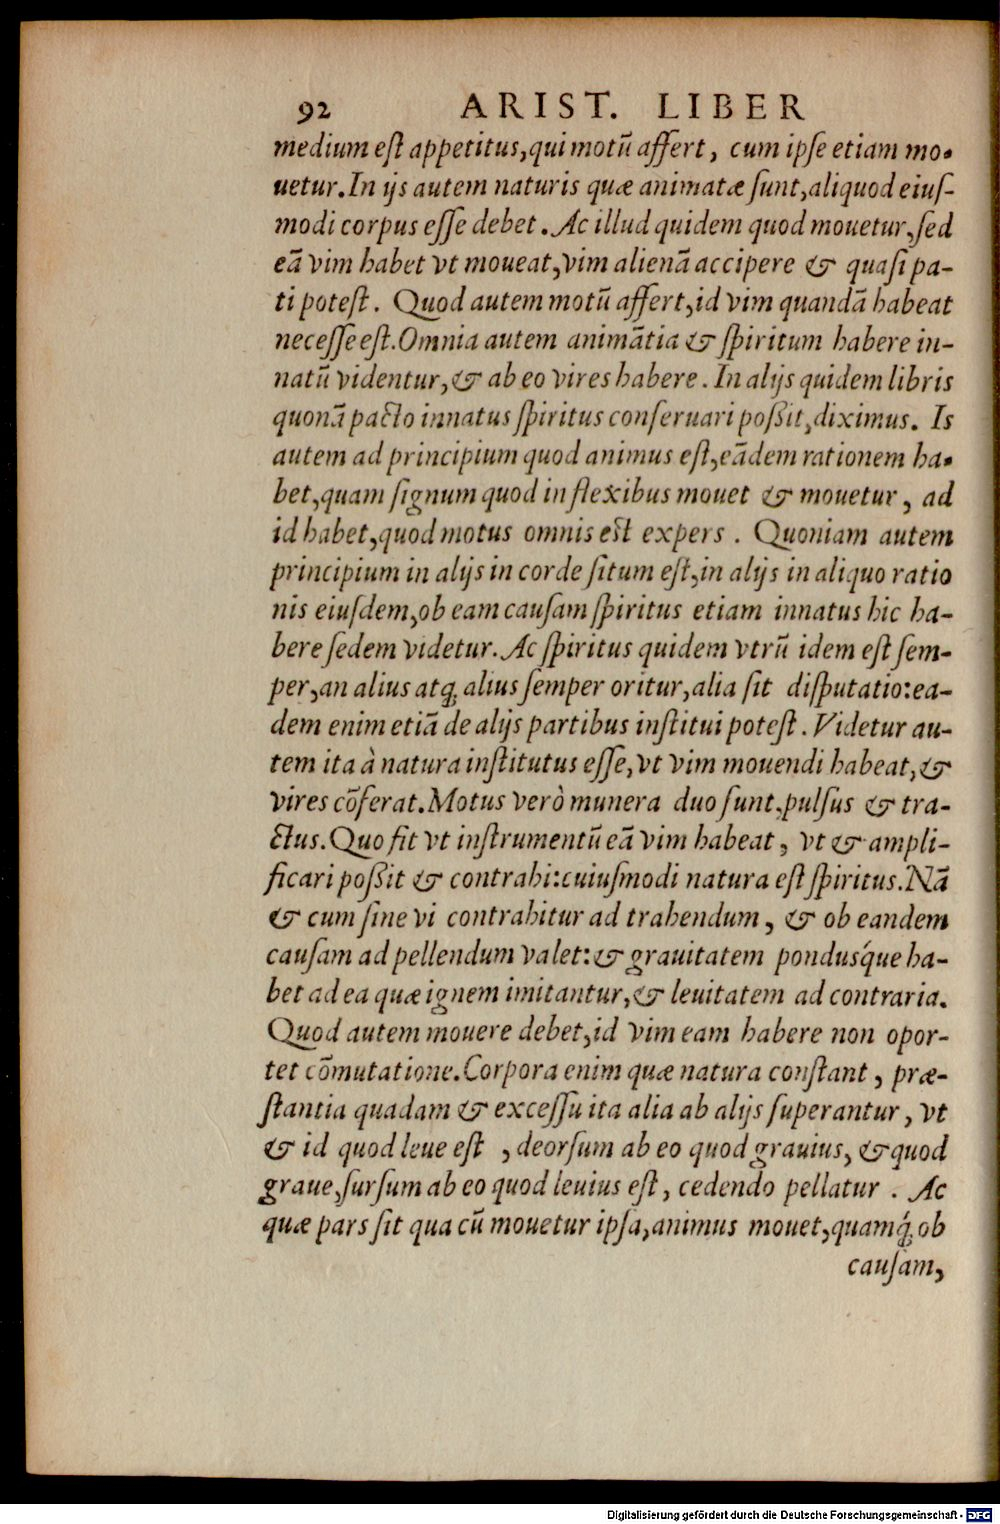 92 ARIST. LIBER
medium est appetitus, qui motū affert, cum ipse etiam mo-
uetur. In ijs autem naturis quæ animatæ sunt, aliquod eius-
modi corpus esse debet. Ac illud quidem quod mouetur, sed
eā vim habet vt moueat, vim alienā accipere & quasi pa-
ti potest. Quod autem motū affert, id vim quandā habeat
necesse est. Omnia autem animātia & spiritum habere in-
natū videntur, & ab eo vires habere. In alijs quidem libris
quonā pacto innatus spiritus conseruari poßit, diximus. Is
autem ad principium quod animus est, eādem rationem ha-
bet, quam signum quod in flexibus mouet & mouetur, ad
id habet, quod motus omnis est expers. Quoniam autem
principium in alijs in corde situm est, in alijs in aliquo ratio
nis eiusdem, ob eam causam spiritus etiam innatus hic ha-
bere sedem videtur. Ac spiritus quidem vtrū idem est sem-
per, an alius atq; alius semper oritur, alia sit disputatio: ea-
dem enim etiā de alijs partibus institui potest. Videtur au-
tem ita à natura institutus esse, vt vim mouendi habeat, &
vires cōferat. Motus verò munera duo sunt, pulsus & tra-
ctus. Quo fit vt instrumentū eā vim habeat, vt & ampli-
ficari poßit & contrahi: cuiusmodi natura est spiritus. Nā
& cum sine vi contrahitur ad trahendum, & ob eandem
causam ad pellendum valet: & grauitatem pondusq́ue ha-
bet ad ea quæ ignem imitantur, & leuitatem ad contraria.
Quod autem mouere debet, id vim eam habere non opor-
tet cōmutatione. Corpora enim quæ natura constant, præ-
stantia quadam & excessu ita alia ab alijs superantur, vt
& id quod leue est, deorsum ab eo quod grauius, & quod
graue, sursum ab eo quod leuius est, cedendo pellatur. Ac
quæ pars sit qua cū mouetur ipsa, animus mouet, quamq́; ob
causam,
Digitalisierung gefördert durch die Deutsche Forschungsgemeinschaft - DFG